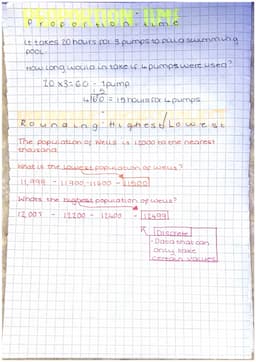 Proportion - time
It takes 20 hours for 3 pumps to build a swimming
pool.
How long would in take if 4 pumps were used?
20 x 3 = 60 - 1 pump
15
4 60 = 15 hours for 4 pumps
Rounding: Highest/Lowest
The population of Wells is 12000 to the nearest
thousand.
What is the lowest population of Wells?
11,998 - 11,900 - 11600 - 11500
Whats the biggest population of Wells?
12,007 - 12200 - 12400 - 12499
Discrete
- Data that can
only take
certain values